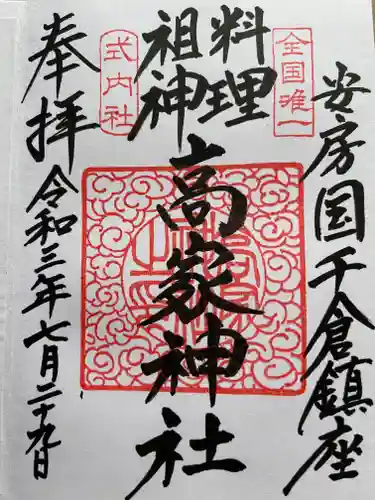 安房国千倉鎮座
全国唯一
料理
祖神
式内社
高家神社
奉拝
令和三年七月二十九日